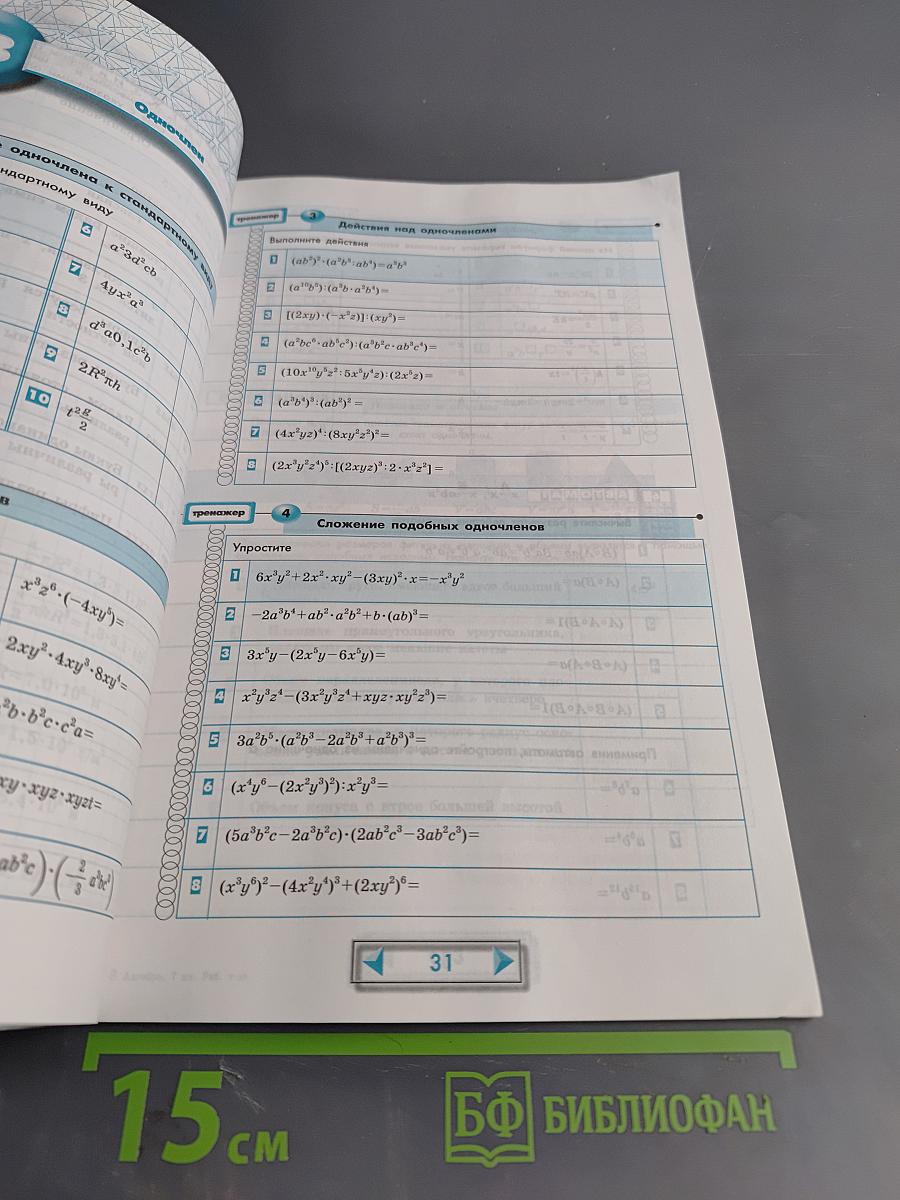 Одночлен
одночлена к стандартному виду
стандартному виду
6 a²3d²cb
7 4yx²a³
8 d³a0,1c²b
9 2R²πh
10 t²g/2
x³z⁶·(−4xy⁵)=
2xy²·4xy³·8xy⁴=
²b·b²c·c²a=
xy·xyz·xyzt=
ab²c)·(−2/3
тренажер 3 Действия над одночленами
Выполните действия
1 (ab²)²·(a²b⁵:ab⁴)=a³b⁵
2 (a¹⁰b⁵):(a³b·a²b⁴)=
3 [(2xy)·(−x²z)]:(xy²)=
4 (a²bc⁶·ab⁵c²):(a³b²c·ab³c⁴)=
5 (10x¹⁰y⁵z²:5x⁵y⁴z):(2x⁵z)=
6 (a³b⁴)³:(ab²)²=
7 (4x²yz)⁴:(8xy²z²)²=
8 (2x³y²z⁴)⁵:[(2xyz)³:2·x³z²]=
тренажер 4 Сложение подобных одночленов
Упростите
1 6x³y²+2x²·xy²−(3xy)²·x=−x³y²
2 −2a³b⁴+ab²·a²b²+b·(ab)³=
3 3x⁵y−(2x⁵y−6x⁵y)=
4 x²y³z⁴−(3x²y³z⁴+xyz·xy²z³)=
5 3a²b⁵·(a²b³−2a²b³+a²b³)³=
6 (x⁴y⁶−(2x²y³)²):x²y³=
7 (5a³b²c−2a³b²c)·(2ab²c³−3ab²c³)=
8 (x³y⁶)²−(4x²y⁴)³+(2xy²)⁶=
31
15 см
БФ БИБЛИОФАН